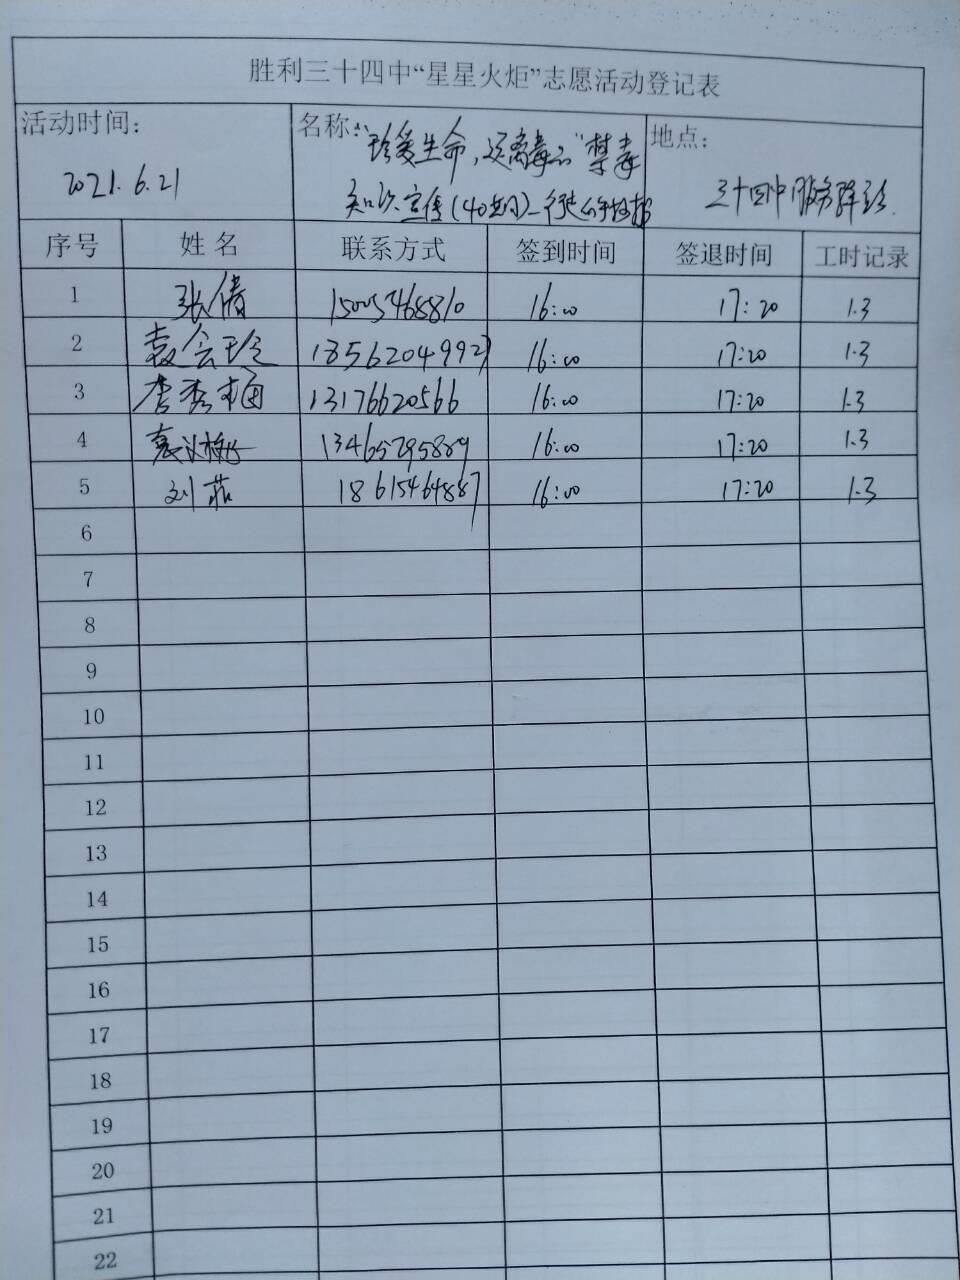 胜利三十四中“星星火炬”志愿活动登记表
活动时间： 名称：“珍爱生命，远离毒品”禁毒 地点：
2021.6.21 知识宣传(40共同) 三十四中服务驿站
序号 姓名 联系方式 签到时间 签退时间 工时记录
1 张倩 15005468810 16:00 17:20 1.3
2 袁会珍 13562049927 16:00 17:20 1.3
3 李秀梅 13176620566 16:00 17:20 1.3
4 13465295889 16:00 17:20 1.3
5 刘茹 18615464887 16:00 17:20 1.3
6
7
8
9
10
11
12
13
14
15
16
17
18
19
20
21
22